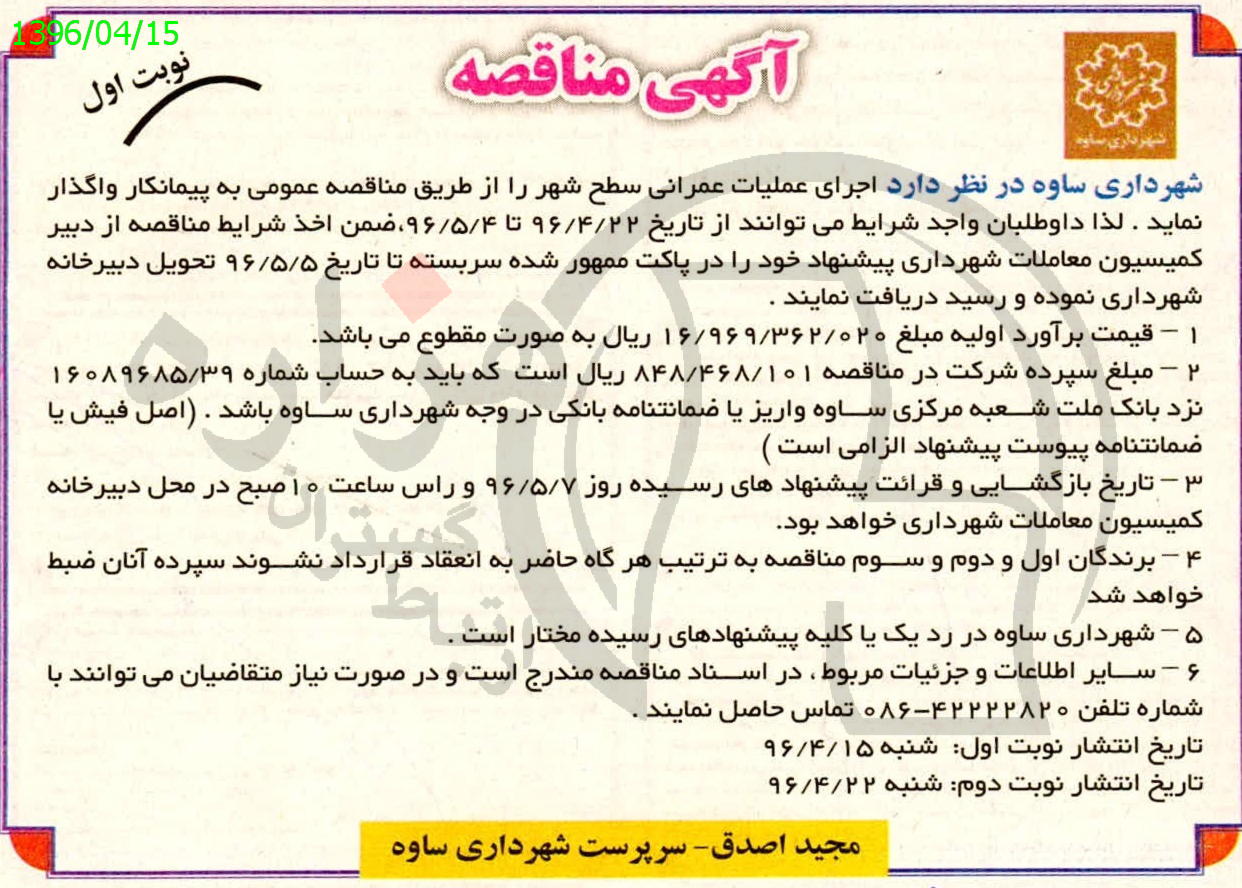 1396/04/15
آگهی مناقصه
نوبت اول
شهرداری ساوه
شهرداری ساوه در نظر دارد اجرای عملیات عمرانی سطح شهر را از طریق مناقصه عمومی به پیمانکار واگذار
نماید . لذا داوطلبان واجد شرایط می توانند از تاریخ ۹۶/۴/۲۲ تا ۹۶/۵/۴،ضمن اخذ شرایط مناقصه از دبیر
کمیسیون معاملات شهرداری پیشنهاد خود را در پاکت ممهور شده سربسته تا تاریخ ۹۶/۵/۵ تحویل دبیرخانه
شهرداری نموده و رسید دریافت نمایند .
۱ – قیمت برآورد اولیه مبلغ ۱۶/۹۶۹/۳۶۲/۰۲۰ ریال به صورت مقطوع می باشد.
۲ – مبلغ سپرده شرکت در مناقصه ۸۴۸/۴۶۸/۱۰۱ ریال است که باید به حساب شماره ۱۶۰۸۹۶۸۵/۳۹
نزد بانک ملت شعبه مرکزی ساوه واریز یا ضمانتنامه بانکی در وجه شهرداری ساوه باشد . (اصل فیش یا
ضمانتنامه پیوست پیشنهاد الزامی است )
۳ – تاریخ بازگشایی و قرائت پیشنهاد های رسیده روز ۹۶/۵/۷ و راس ساعت ۱۰صبح در محل دبیرخانه
کمیسیون معاملات شهرداری خواهد بود.
۴ – برندگان اول و دوم و سوم مناقصه به ترتیب هر گاه حاضر به انعقاد قرارداد نشوند سپرده آنان ضبط
خواهد شد
۵ – شهرداری ساوه در رد یک یا کلیه پیشنهادهای رسیده مختار است .
۶ – سایر اطلاعات و جزئیات مربوط ، در اسناد مناقصه مندرج است و در صورت نیاز متقاضیان می توانند با
شماره تلفن ۴۲۲۲۲۸۲۰–۰۸۶ تماس حاصل نمایند .
تاریخ انتشار نوبت اول: شنبه ۹۶/۴/۱۵
تاریخ انتشار نوبت دوم: شنبه ۹۶/۴/۲۲
مجید اصدق- سرپرست شهرداری ساوه
هزاره
گستران
ارتباط